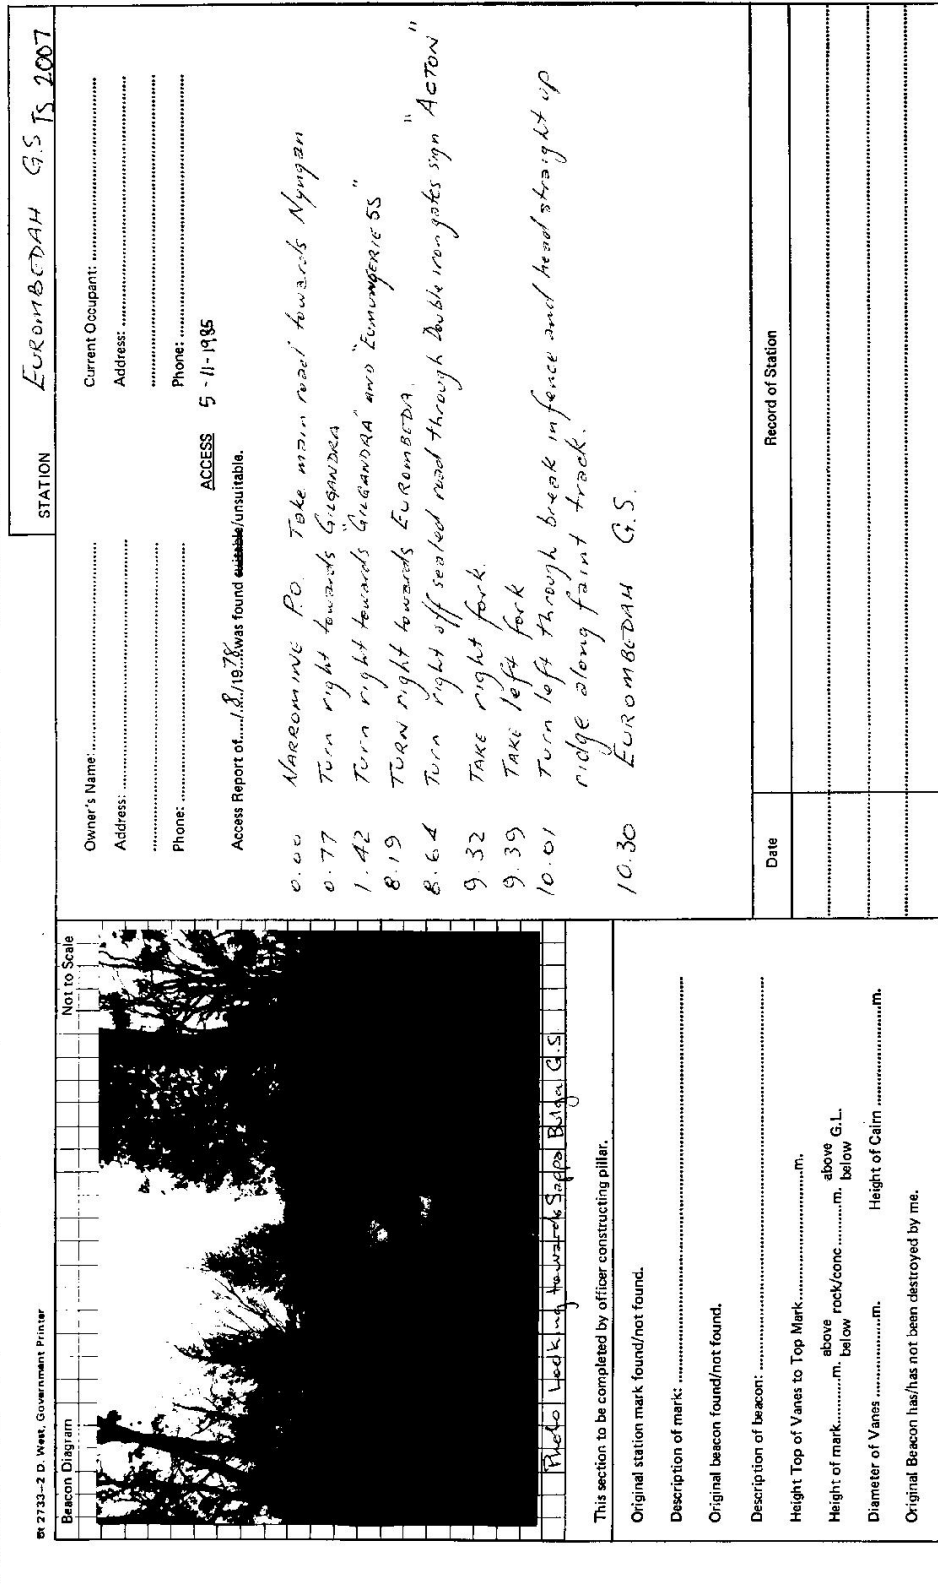 St 2733–2 D. West, Government Printer
Beacon Diagram
Not to Scale
Photo Looking towards Sappa Bulga G.S.
This section to be completed by officer constructing pillar.
Original station mark found/not found.
Description of mark:
Original beacon found/not found.
Description of beacon:
Height Top of Vanes to Top Mark..........m.
Height of mark..........m. above below rock/conc..........m. above below G.L.
Diameter of Vanes..........m. Height of Cairn..........m.
Original Beacon has/has not been destroyed by me.
STATION EUROMBEDAH G.S TS 2007
Owner's Name:
Address:
Phone:
Current Occupant:
Address:
Phone:
ACCESS 5-11-1985
Access Report of 1.8./1978 was found suitable/unsuitable.
0.00 NARROMINE P.O. Take main road towards Nyngan
0.77 Turn right towards GILGANDRA
1.42 Turn right towards "GILGANDRA" AND "EUMUNGERIE 55"
8.19 TURN right towards EUROMBEDA.
8.64 Turn right off sealed road through Double iron gates sign "ACTON"
9.32 TAKE right fork.
9.39 TAKE left fork
10.01 Turn left through break in fence and head straight up
ridge along faint track.
10.30 EUROMBEDAH G.S.
Date
Record of Station